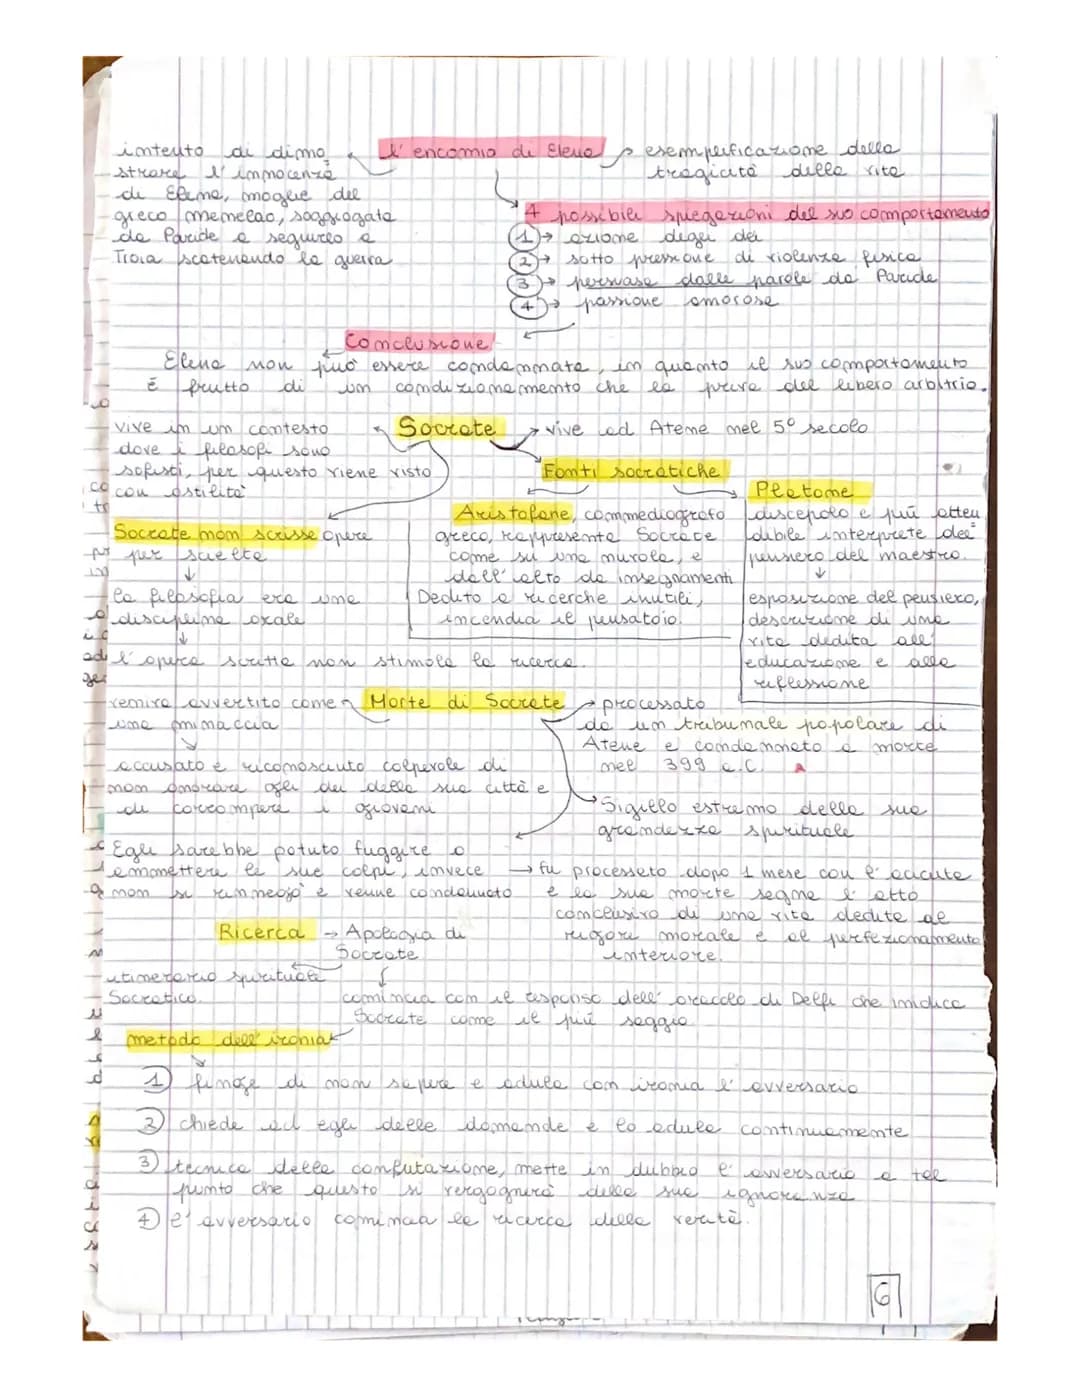 intento di dimo
strare l'innocenza
di Elena, moglie del
greco menelao, soggiogata
da Paride a seguirlo a
Troia scatenando la guerra
l'encomio di Elena
esemplificazione della
tragicità della vita
4 possibili spiegazioni del suo comportamento
1 → azione degli dei
2 → sotto pressione di violenza fisica
3 → persuasa dalle parole da Paride
4 → passione amorosa
Conclusione
Elena non può essere condannata, in quanto il suo comportamento
È frutto di un condizionamento che la priva del libero arbitrio.
Socrate
vive ad Atene nel 5° secolo
vive in un contesto
dove i filosofi sono
sofisti, per questo viene visto
con ostilità
Fonti socratiche
Aristofane, commediografo
greco, rappresenta Socrate
come su una nuvola, e
dall'alto da insegnamenti
Dedito a ricerche inutili,
incendia il pensatoio.
Platone
discepolo e più atten
dibile interprete del
pensiero del maestro.
↓
esposizione del pensiero,
descrizione di una
vita dedita all'
educazione e alla
riflessione
Socrate non scrisse opere
per scelta
↓
la filosofia era una
disciplina orale
↓
l'opera scritta non stimola la ricerca.
Morte di Socrate
venire avvertito come
una minaccia
accusato e riconosciuto colpevole di
non onorare gli dei della sua città e
di corrompere i giovani
processato
da un tribunale popolare di
Atene e condannato a morte
nel 399 a.C.
Sigillo estremo della sua
grandezza spirituale
Egli sarebbe potuto fuggire o
ammettere le sue colpe, invece
non si rinnegò e venne condannato
→ fu processato dopo 1 mese con la cicuta
e la sua morte segna l'atto
conclusivo di una vita dedita al
rigore morale e al perfezionamento
interiore.
Ricerca → Apologia di
Socrate
itinerario spirituale
Socratico.
comincia con il responso dell'oracolo di Delfi che indica
Socrate come il più saggio
metodo dell'ironia
1) finge di non sapere e adula con ironia l'avversario
2) chiede ad egli delle domande e lo adula continuamente
3) tecnica della confutazione, mette in dubbio l'avversario a tal
punto che questo si vergognerà della sua ignoranza
4) l'avversario comincia la ricerca della verità.
6